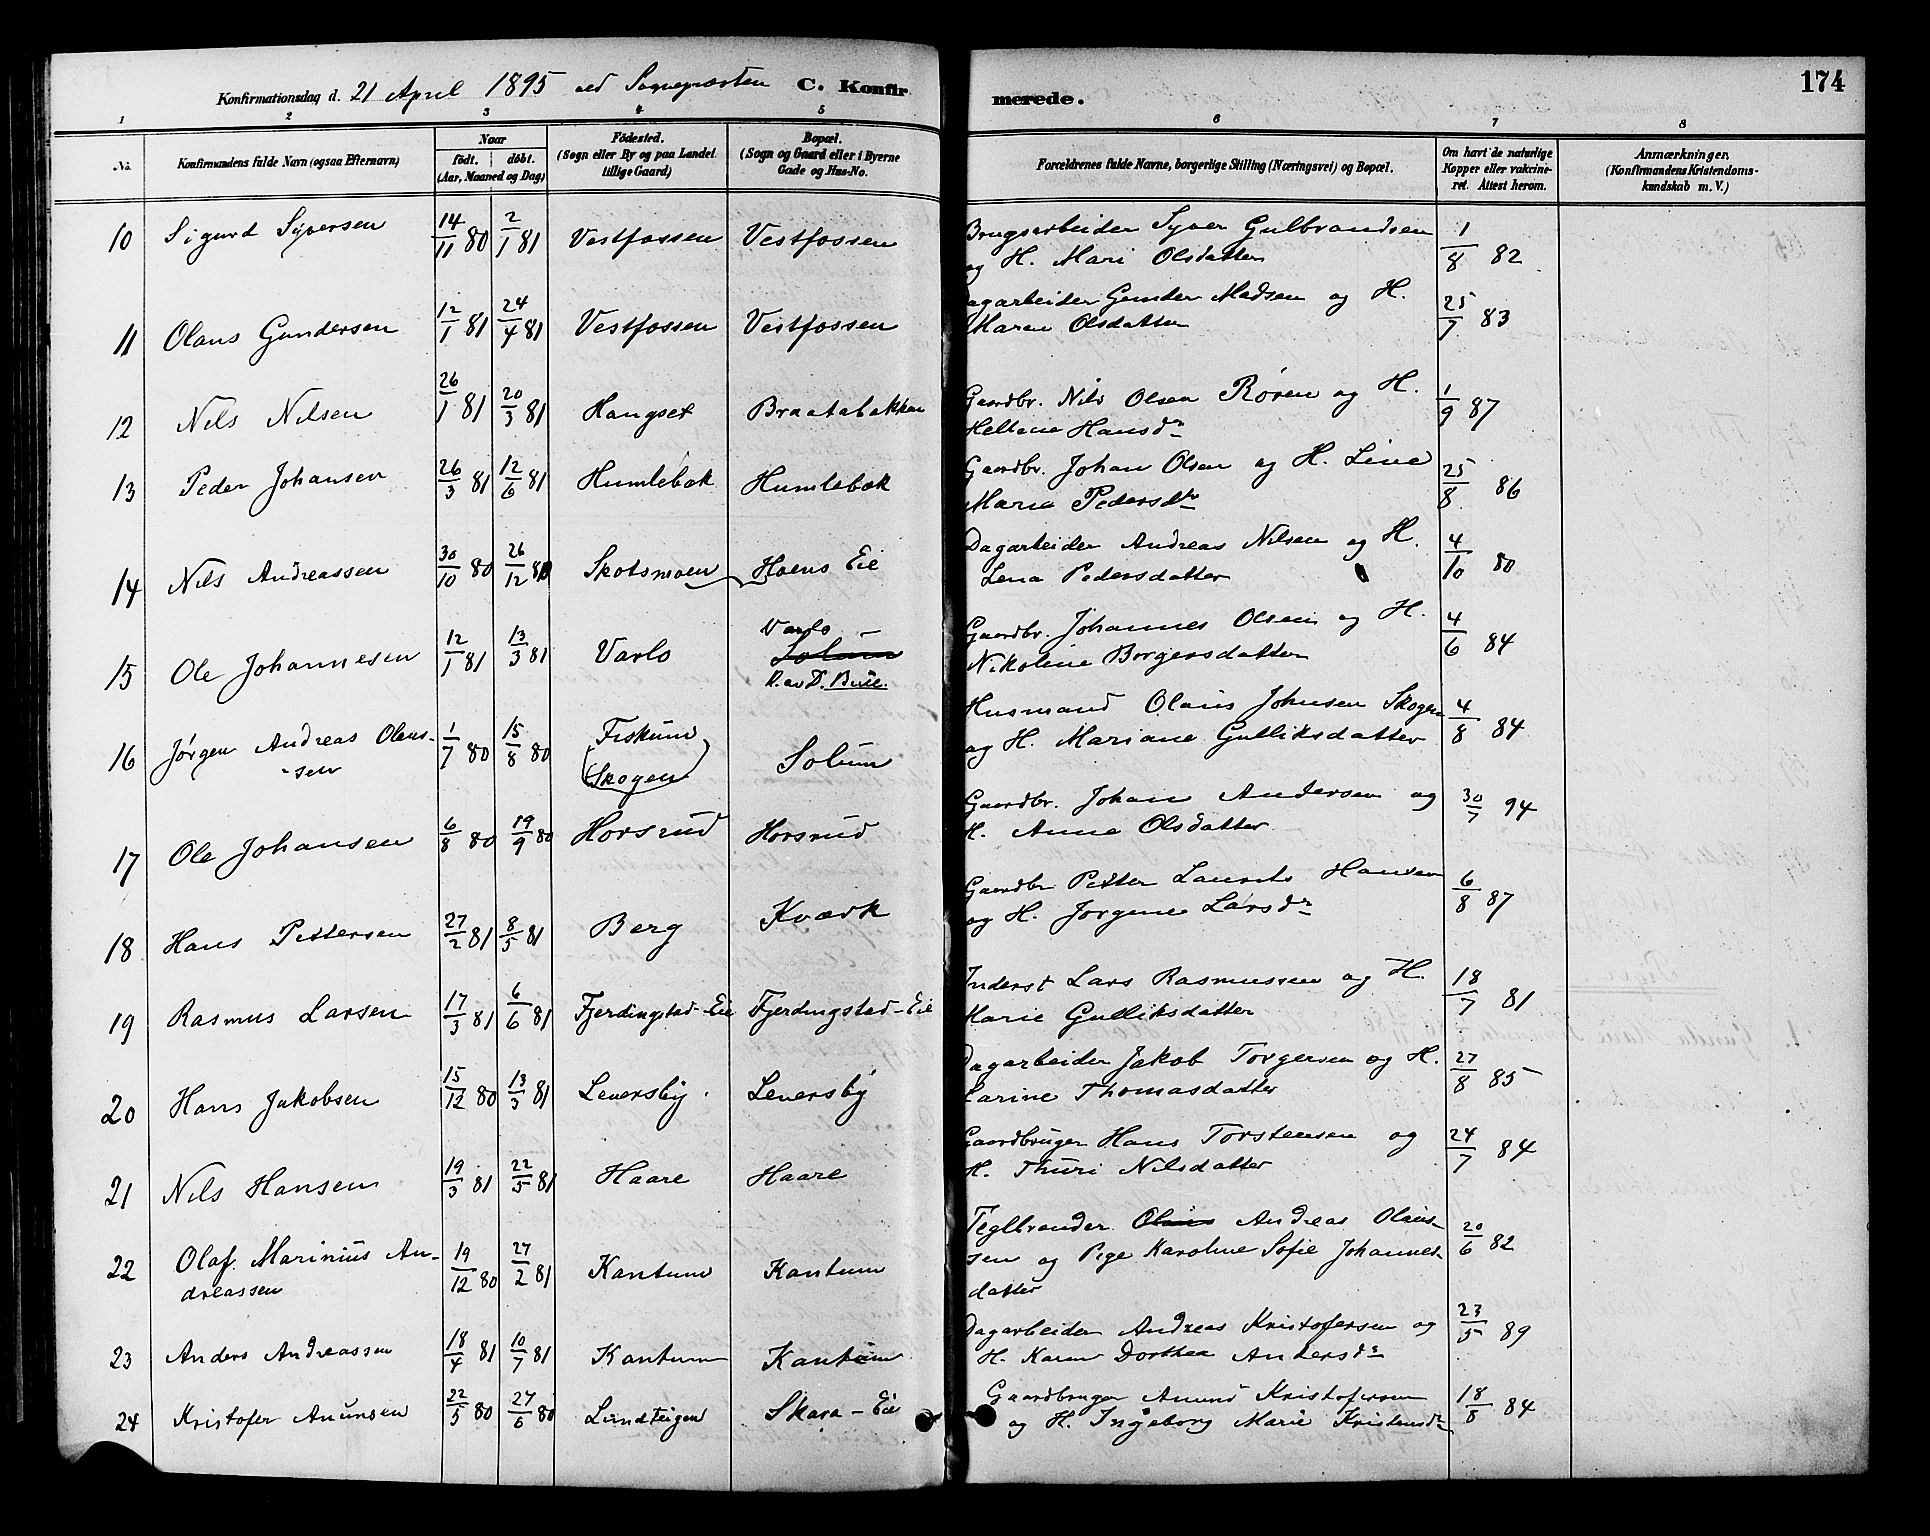 Konfirmationsdag d. 21 April 1895 ved Sognepresten C. Konfirmerede. 174
1 2 3 4 5 6 7 8
No. Konfirmandens fulde Navn (ogsaa Efternavn) Naar født. døbt. (Aar, Maaned og Dag) Fødested. (Sogn eller By og paa Landet tillige Gaard) Bopæl. (Sogn og Gaard eller i Byerne Gade og Hus-No. Forældrenes fulde Navne, borgerlige Stilling (Næringsvei) og Bopæl. Om havt de naturlige Kopper eller vakcineret. Attest herom. Anmærkninger. (Konfirmandens Kristendomskundskab m. V.)
10 Sigurd Syversen 14/11 80 2/1 81 Vestfossen Vestfossen Brugsarbeider Syver Gulbrandsen 1/8 82
og H. Mari Olsdatter
11 Olaus Gundersen 12/1 81 24/4 81 Vestfossen Vestfossen Dagarbeider Gunder Madsen og H. 25/7 83
Maren Olsdatter
12 Nils Nilsen 26/1 81 20/3 81 Hangset Braatabakken Gaardbr. Nils Olsen Røren og H. 1/9 87
Hellene Hansdr
13 Peder Johansen 26/3 81 12/6 81 Humlebæk Humlebæk Gaardbr. Johan Olsen og H. Line 25/8 86
Maria Pedersdtr
14 Nils Andreassen 30/10 80 26/12 80 Skotsmoen Hoens Eie Dagarbeider Andreas Nilsen og H. 4/10 80
Lena Pedersdatter
15 Ole Johannesen 12/1 81 13/3 81 Varlo Varlo Gaardbr. Johannes Olsen og H. 4/6 84
Solum
Nikoline Borgersdatter
16 Jørgen Andreas Olaus- 1/7 80 15/8 80 Fiskum Solum Husmand Olaus Johnsen Skogen 4/8 84
sen (Skogen) og H. Mariane Gulliksdatter
17 Ole Johansen 6/8 80 19/9 80 Horsrud Horsrud Gaardbr. Johan Andersen og 30/7 94
H. Anne Olsdatter
18 Hans Pettersen 27/2 81 8/5 81 Berg Kværk Gaardbr Petter Laurits Hansen 6/8 87
og H. Jorgene Larsdr
19 Rasmus Larsen 17/3 81 6/6 81 Fjerdingstad-Eie Fjerdingstad-Eie Inderst Lars Rasmussen og H. 18/7 81
Marie Gulliksdatter
20 Hans Jakobsen 15/12 80 13/3 81 Leversby. Leversby Dagarbeider Jakob Torgersen og H. 27/8 85
Karine Thomasdatter
21 Nils Hansen 19/3 81 22/5 81 Haare Haare Gaardbruger Hans Torstensen og 24/7 84
H. Thuri Nilsdatter
22 Olaf Marinius An- 19/12 80 27/2 81 Kantum Kantum Teglbrænder Olaus Andreas Olaus- 20/6 82
dreassen sen og Pige Karoline Sofie Johannes-
datter
23 Anders Andreassen 18/4 81 10/7 81 Kantum Kantum Dagarbeider Andreas Kristofersen og 23/5 89
H. Karen Dorthea Andersdr
24 Kristofer Amunsen 22/5 80 27/6 80 Lundteigen Skara-Eie Gaardbruger Amund Kristofersen 18/8 84
og H. Ingeborg Marie Kristensdr